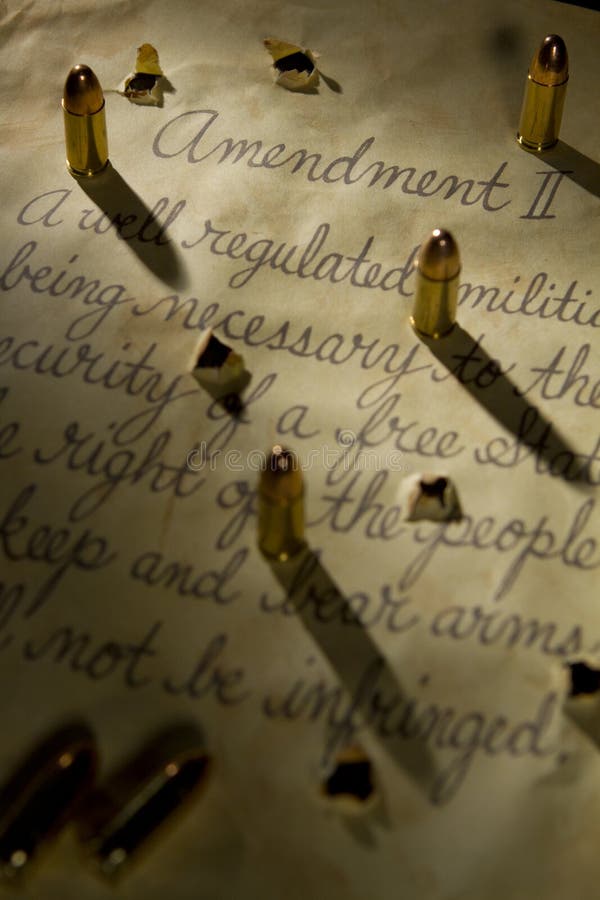 Amendment II
A well regulated militi
being necessary to the
ecurity of a free Stat
e right of the people
keep and bear arms
l not be infringed.
dreamstime